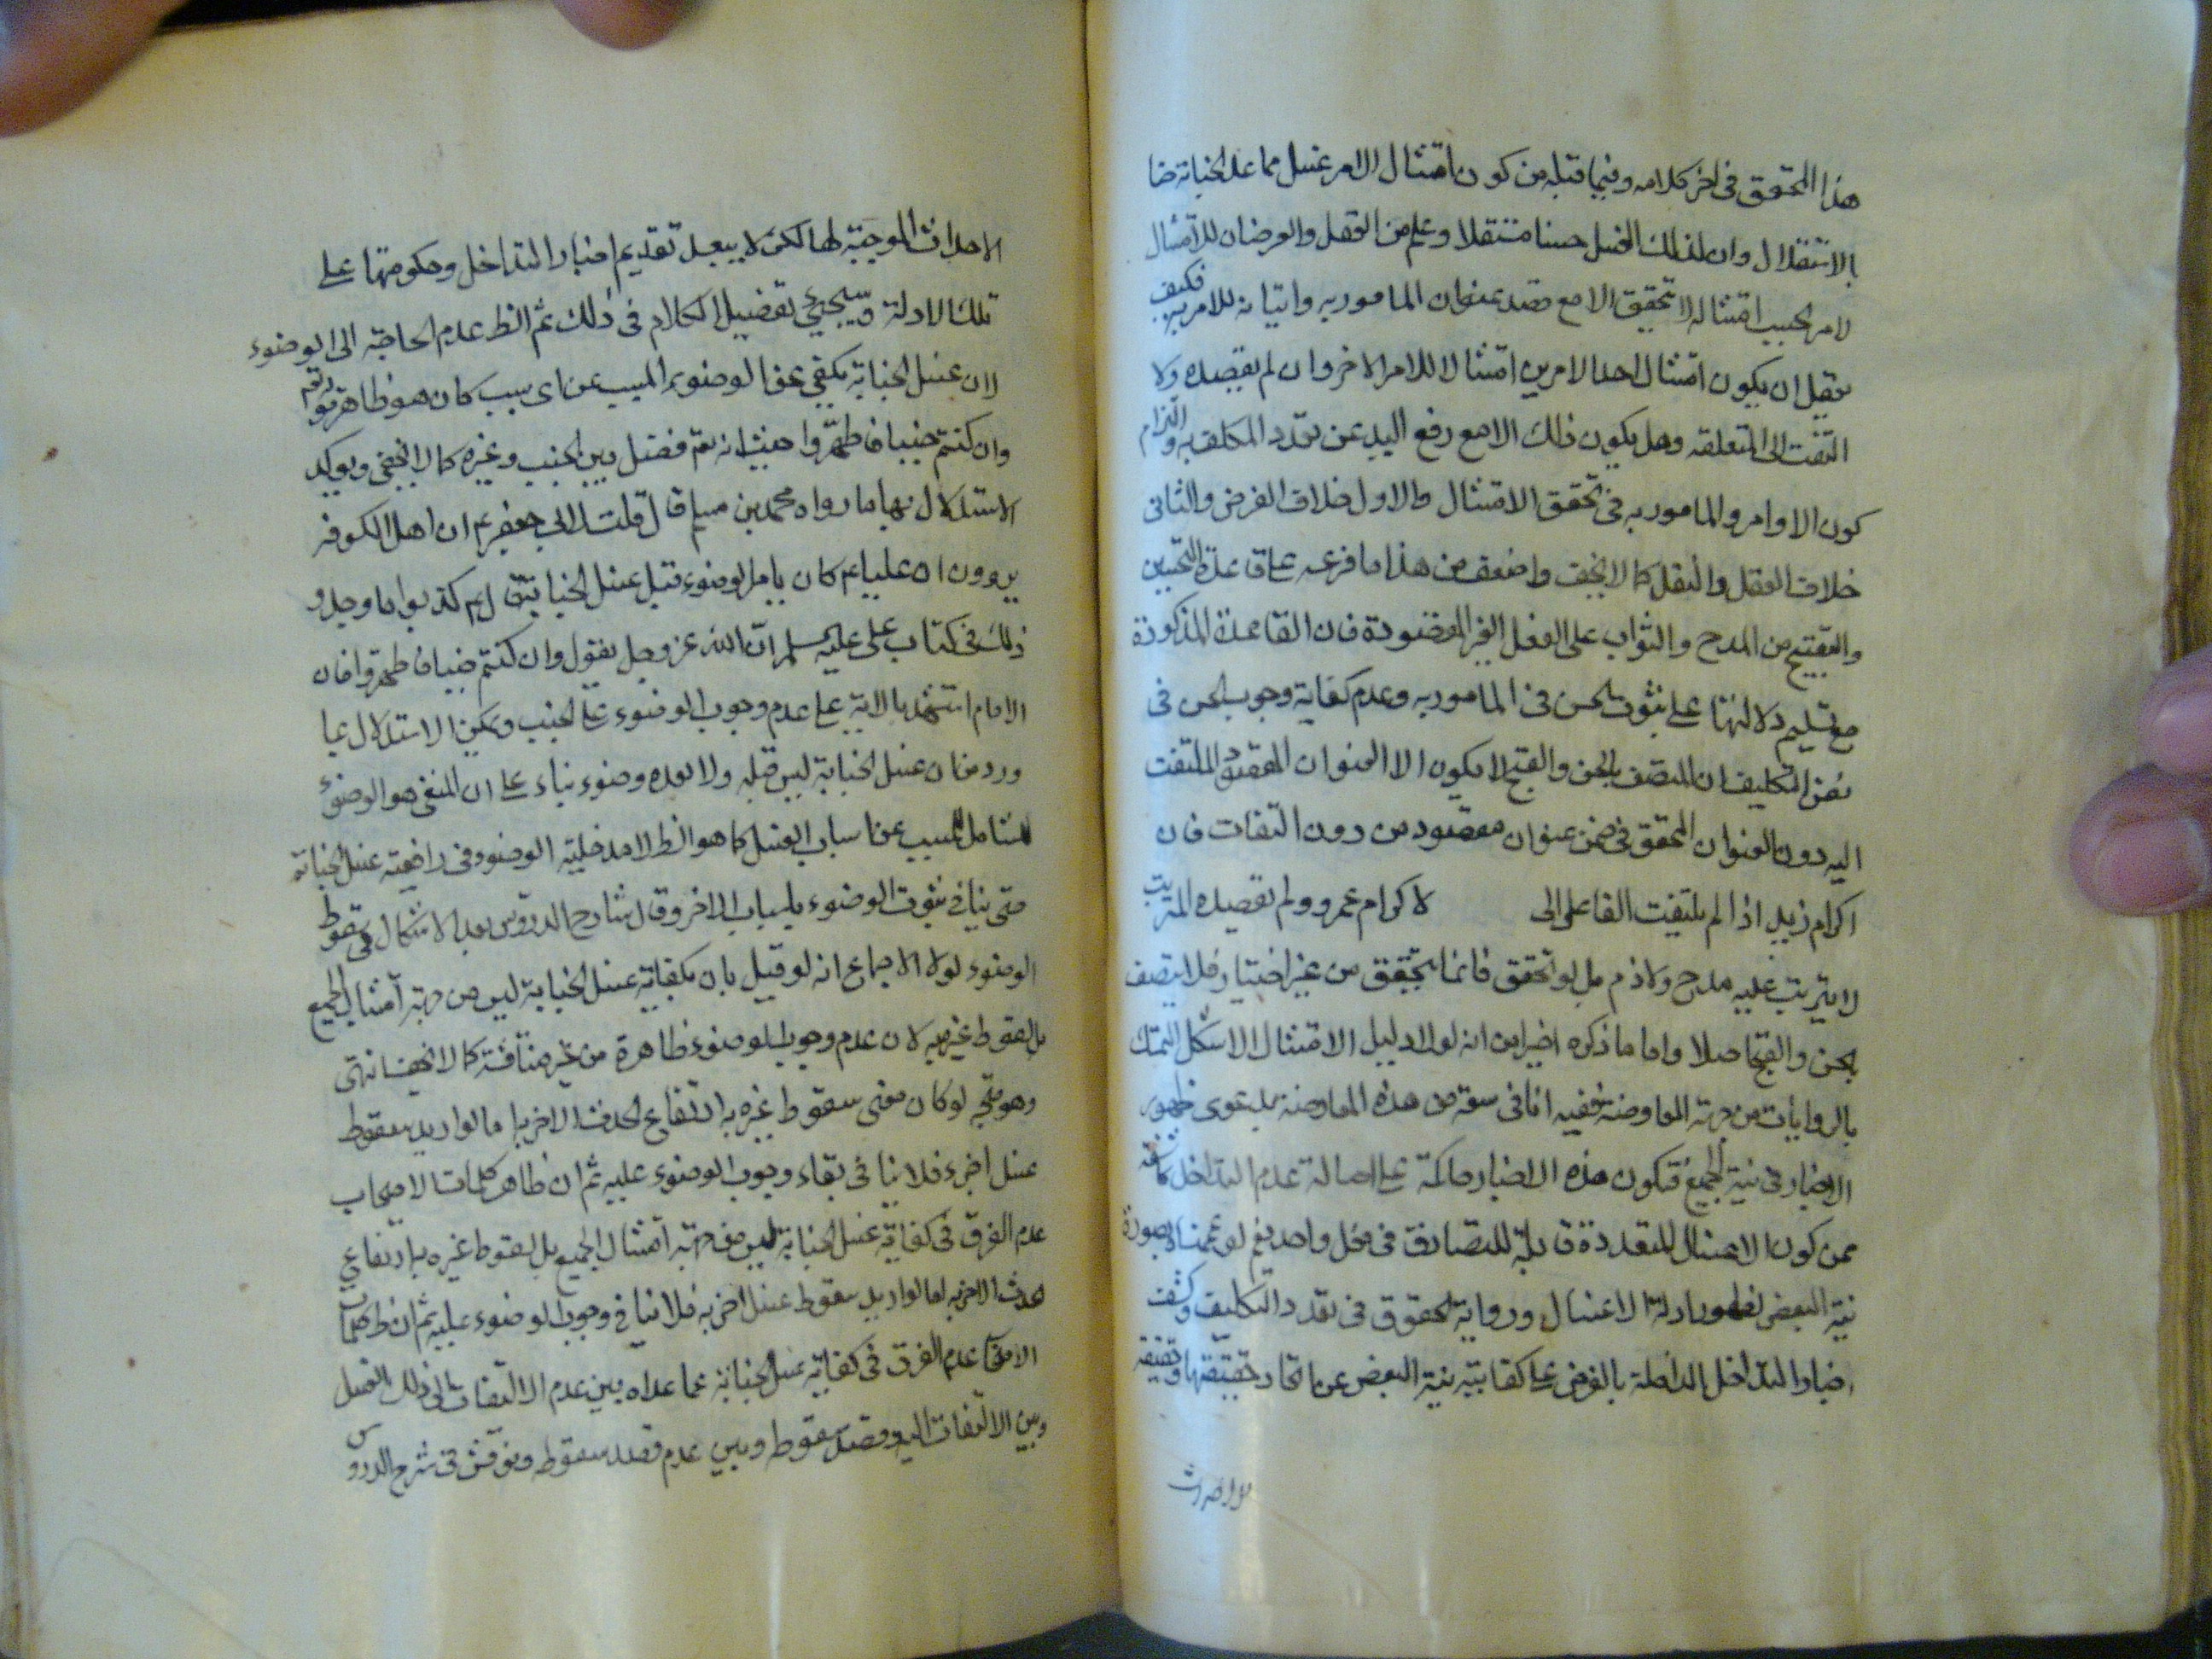 هذا المحقق في اخر كلامه وفيما قبله من كون امتثال الامر غسل مما عدا الجنابة
بالاستقلال وان لذلك الغسل حسنا مستقلا وعلم من العقل والعرف ان الامتثال
لامر الحبيب امتثاله لا يتحقق الا مع قصد عنوان المامور به واتيانه للامر به فكيف
يعقل ان يكون امتثال احد الامرين امتثالا للامر الاخر وان لم يقصده ولا
التفت الى المتعلقه وهل يكون ذلك الا مع رفع اليد عن تعدد المكلف به والتزام
كون الاوامر والمامور به في تحقق الامتثال والاول خلاف الفرض والثاني
خلاف العقل والنقل كما لا يخفى واضعف من هذا ما فرعه على قاعدة التحسين
والتقبيح من المدح والثواب على الفعل الغير المقصود فان القاعدة المذكورة
مع تسليم دلالتها على ثبوت الحسن في المامور به وعدم كفاية وجوب الحسن في
نفس التكليف ان المتصف بالحسن والقبح لا يكون الا العنوان المقصود الملتفت
اليه دون العنوان المحقق في ضمن عنوان مقصود من دون التفات فان
اكرام زيد اذا لم يلتفت الفاعل الى لاكرام عمرو ولم يقصده
لا يترتب عليه مدح ولا ذم بل لو تحقق فانما يتحقق من غير اختيار فلا يتصف
بحسن والقبح اصلا واما ما ذكره اخيرا من انه لولا دليل الامتثال لاشكل التمسك
بالروايات من جهة المعارضة ففيه انا في سعة من هذه المعارضة بدعوى ظهور
الاخبار في نية الجميع فتكون هذه الاخبار حاكمة على اصالة عدم التداخل كاشفة
عن كون الاغسال المتعددة قابلة للتصادق في فعل واحد نعم لو عممنا لصورة
نية البعض لظهور ادلة الاغسال ورواية الحقوق في تعدد التكاليف وكشف
اخبار التداخل الداخلة بالفرض على كفاية نية البعض عن اتحاد حقيقتها
الاحداث
الاحداث الموجبة لها لكن لا يبعد تقديم اخبار التداخل وحكومتها على
تلك الادلة وسيجيء تفصيل الكلام في ذلك ثم الظ عدم الحاجة الى الوضوء
لان غسل الجنابة يكفي عن الوضوء المسبب عن اى سبب كان هو ظاهر قوله تعم
وان كنتم جنبا فاطهروا حيث انه تعم فصل بين الجنب وغيره كما لا يخفى ويؤكد
الاستدلال بها ما رواه محمد بن مسلم قال قلت لابي جعفر ع ان اهل الكوفه
يروون ان عليا ع كان يامر بالوضوء قبل غسل الجنابة قال ع كذبوا ما وجدوا
ذلك في كتاب علي عليه السلام ان الله عز وجل يقول وان كنتم جنبا فاطهروا فان
الامام استشهد بالاية على عدم وجوب الوضوء على الجنب ويمكن الاستدلال بما
ورد من ان غسل الجنابة ليس قبله ولا بعده وضوء بناء على ان المنفي هو الوضوء
الشامل للمسبب عن اسباب الغسل كما هو الظ لا مدخلية الوضوء في رافعية غسل الجنابة
حتى ينافي ثبوت الوضوء باسباب الاخر وقال شارح الدروس بعد الاشكال في سقوط
الوضوء لولا الاجماع انه لو قيل بان كفاية غسل الجنابة ليس من جهة امتثال الجميع
بل لسقوط غيره به لان عدم وجوب الوضوء ظاهرة من غير مناقشة كما لا يخفى انتهى
وهو متجه لو كان معنى سقوط غيره به ارتفاع الحدث الاخر به اما لو اريد سقوط
غسل اخر به فلا ينافي بقاء وجوب الوضوء عليه ثم ان ظاهر كلمات الاصحاب
عدم الفرق في كفاية غسل الجنابة ليس من جهة امتثال الجميع بل لسقوط غيره به ارتفاع
الحدث الاخر به اما لو اريد سقوط غسل اخر به فلا ينافي وجوب الوضوء عليه ثم ان ظ كلمات
الاصحاب عدم الفرق في كفاية غسل الجنابة عما عداه بين عدم الالتفات الى ذلك الغسل
وبين الالتفات اليه وقصد سقوطه وبين عدم قصد سقوطه ونوقش في شرح الدروس